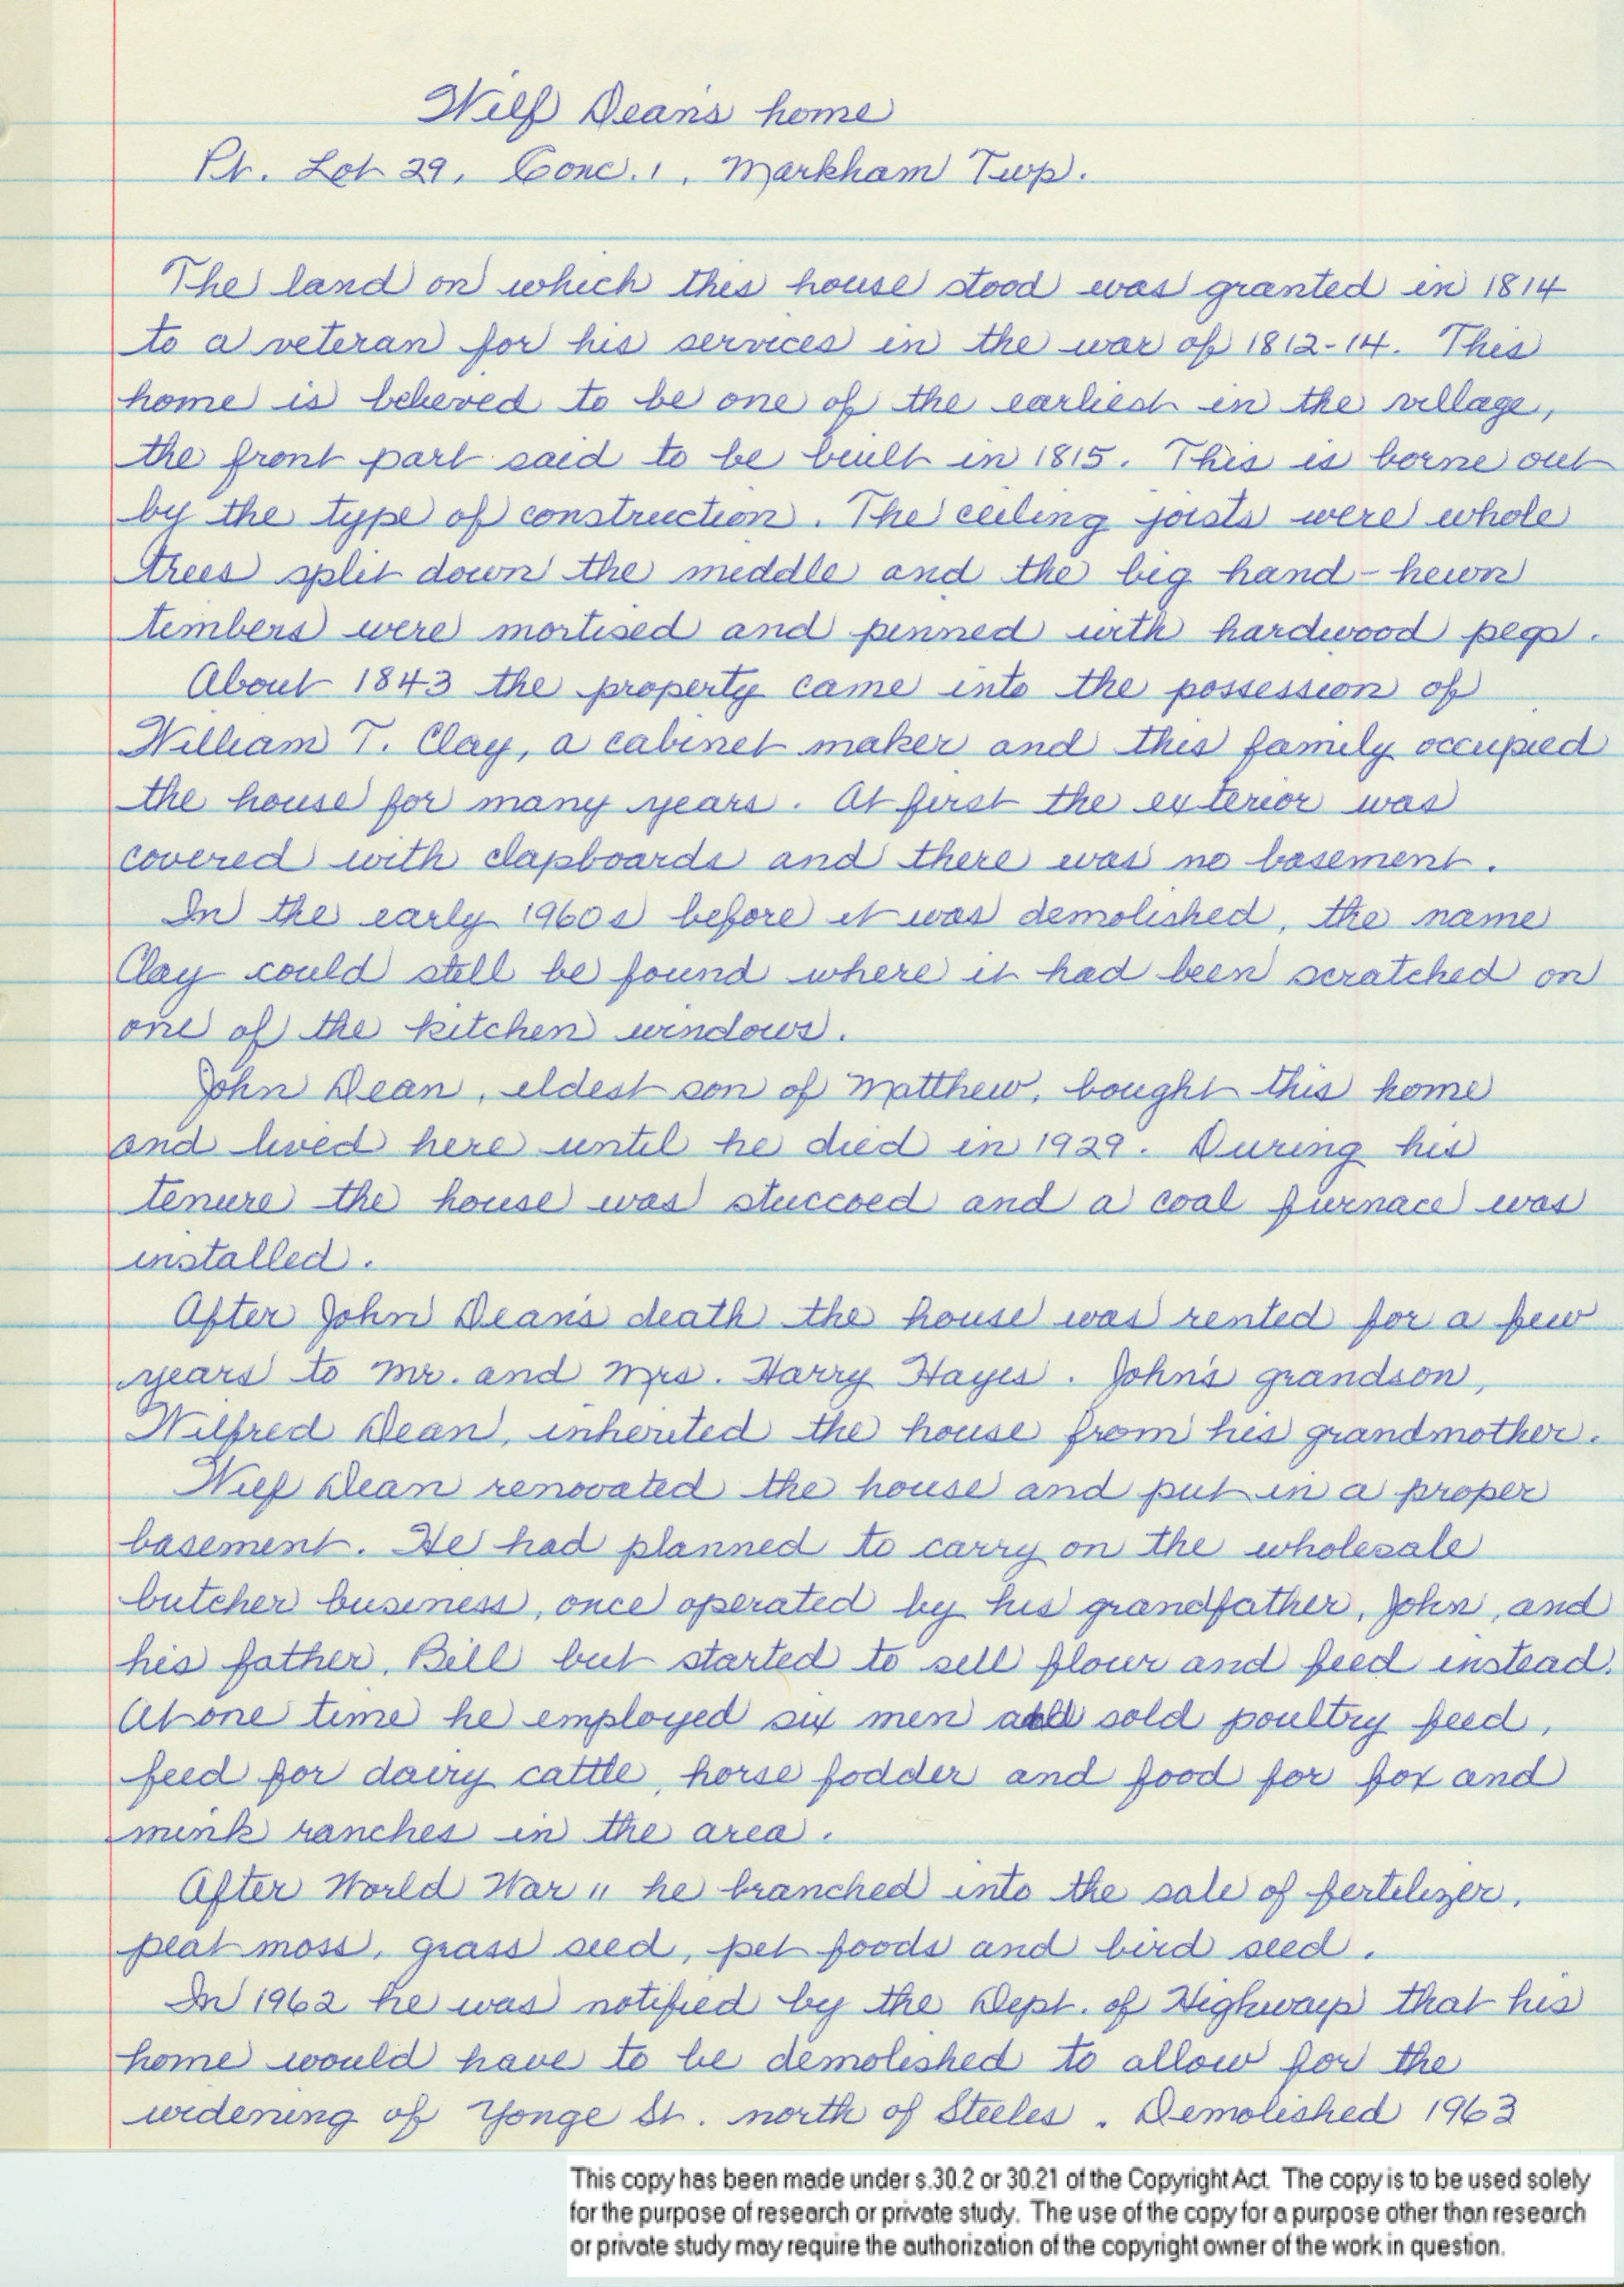 Wilf Dean's home
Pt. Lot 29, Conc. 1, Markham Twp.
The land on which this house stood was granted in 1814
to a veteran for his services in the war of 1812-14. This
home is believed to be one of the earliest in the village,
the front part said to be built in 1815. This is borne out
by the type of construction. The ceiling joists were whole
trees split down the middle and the big hand-hewn
timbers were mortised and pinned with hardwood pegs.
About 1843 the property came into the possession of
William T. Clay, a cabinet maker and this family occupied
the house for many years. At first the exterior was
covered with clapboards and there was no basement.
In the early 1960s before it was demolished, the name
Clay could still be found where it had been scratched on
one of the kitchen windows.
John Dean, eldest son of Matthew, bought this home
and lived here until he died in 1929. During his
tenure the house was stuccoed and a coal furnace was
installed.
After John Dean's death the house was rented for a few
years to Mr. and Mrs. Harry Hayes. John's grandson,
Wilfred Dean, inherited the house from his grandmother.
Wilf Dean renovated the house and put in a proper
basement. He had planned to carry on the wholesale
butcher business, once operated by his grandfather, John, and
his father, Bill but started to sell flour and feed instead.
At one time he employed six men and sold poultry feed,
feed for dairy cattle, horse fodder and food for fox and
mink ranches in the area.
After World War 11 he branched into the sale of fertilizer,
peat moss, grass seed, pet foods and bird seed.
In 1962 he was notified by the Dept. of Highways that his
home would have to be demolished to allow for the
widening of Yonge St. north of Steeles. Demolished 1963
This copy has been made under s.30.2 or 30.21 of the Copyright Act. The copy is to be used solely
for the purpose of research or private study. The use of the copy for a purpose other than research
or private study may require the authorization of the copyright owner of the work in question.